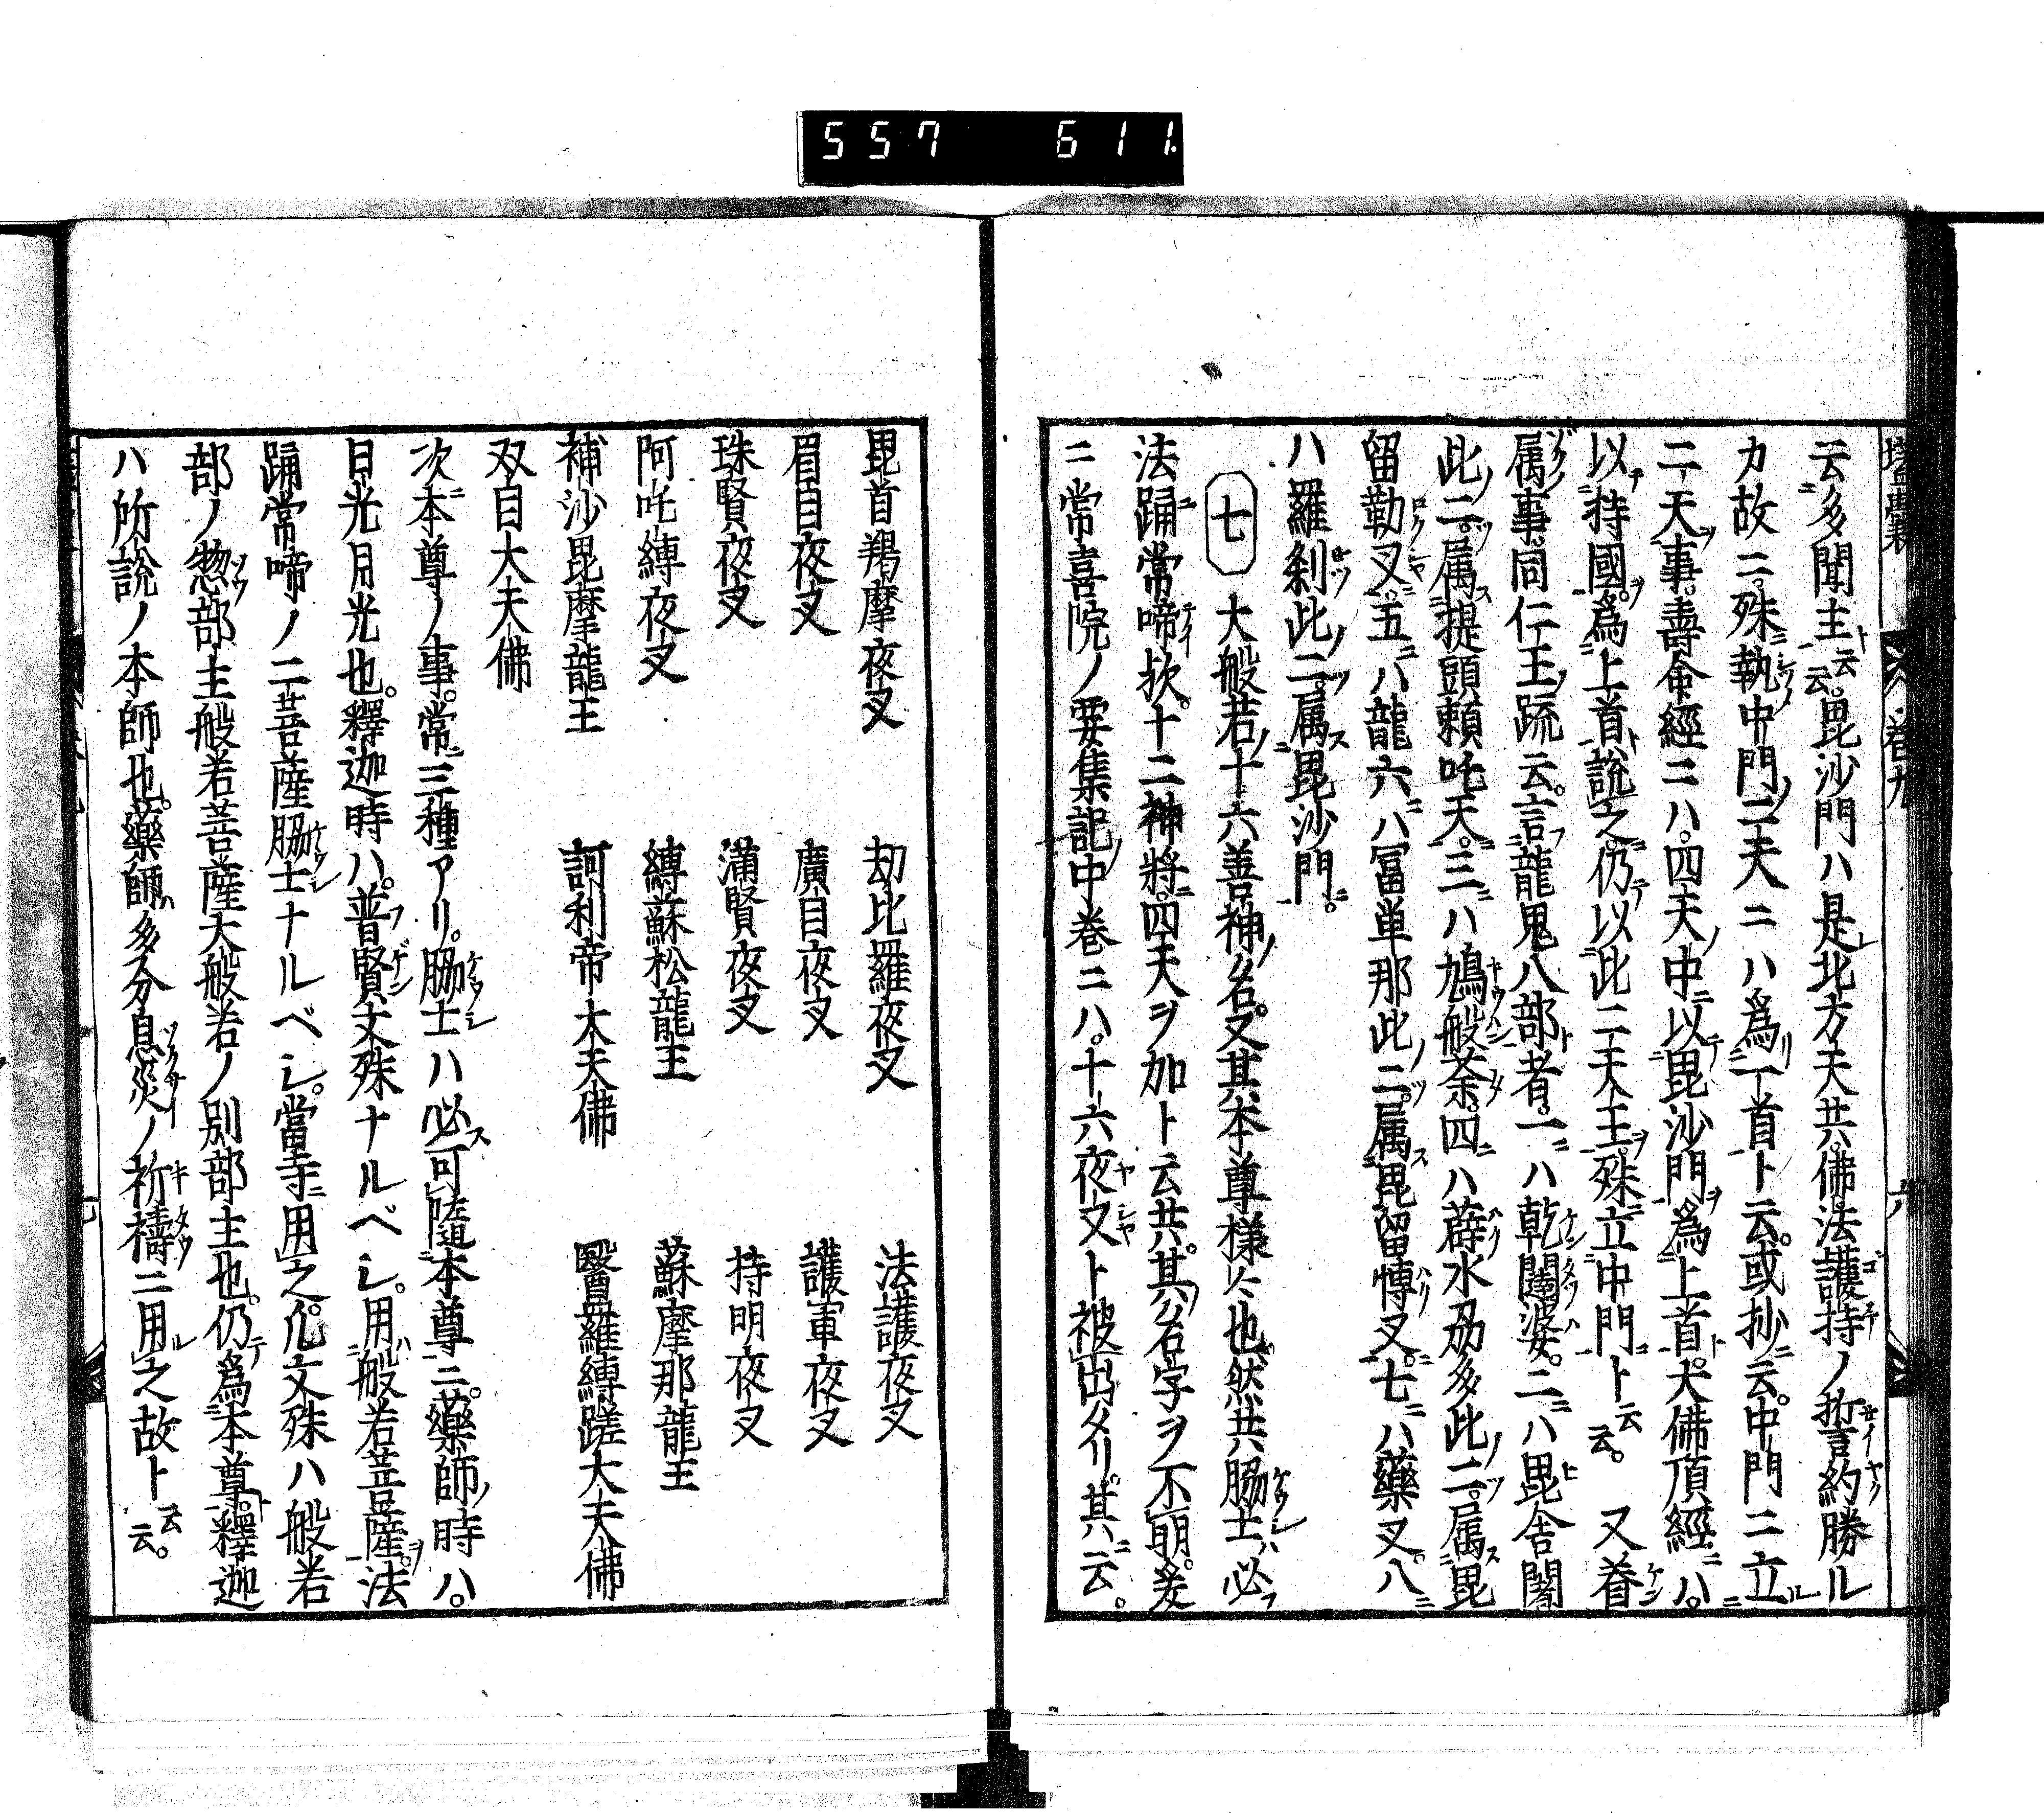 557 611
壒囊 巻九 六
云多聞主ト云云。毘沙門ハ是北方天共佛法護持ノ誓約勝ル
カ故ニ殊執中門ノ二天ニハ爲一首ト云。或抄云。中門ニ立
二天事。壽命經ニハ。四天ノ中ニ以毘沙門ヲ爲上首ト。大佛頂經ニハ。
以持國ヲ爲上首ト說之。仍テ以此二天王ヲ殊立中門ト云云。又眷
属ノ事。同仁王ノ疏云。言龍鬼八部者。一ニハ乾闥婆。二ニハ毘舍闍
此ノ二ツ属ス提頭賴吒天ニ。三ニハ鳩般荼。四ニハ薜氷茘多此ノ二ツ属ス毘
留勒叉ニ。五ニハ龍六ニハ冨単那此ノ二ツ属ス毘留愽叉ニ。七ニハ藥叉。八ニ
ハ羅刹此ノ二ツ属ス毘沙門ニ。
七 大般若ノ十六善神ノ名。又其本尊様々也。然共脇士ハ必
法踊常啼歟。十二神將ニ四天ヲ加ト云共。其ノ名字ヲ不明。爰
ニ常喜院ノ要集記ノ中巻ニハ。十六夜叉ト被出タリ。其ニ云。
毘首羯摩夜叉 刧比羅夜叉 法護夜叉
眉目夜叉 廣目夜叉 護軍夜叉
珠賢夜叉 滿賢夜叉 持明夜叉
阿吒縛夜叉 縛蘇松龍王 蘇摩那龍王
補沙毘摩龍王 訶利帝大天佛 醫羅縛蹉大天佛
双目大天佛
次ニ本尊ノ事。常ニ三種アリ。脇士ハ必ス可隨本尊ニ。藥師ノ時ハ。
日光月光也。釋迦時ハ。普賢文殊ナルベシ。用ハ般若菩薩ヲ。法
踊常啼ノ二菩薩脇士ナルベシ。當寺ニ用之。凡文殊ハ般若
部ノ惣部主般若菩薩大般若ノ別部主也。仍テ爲本尊ト。釋迦
ハ所說ノ本師也。藥師ハ多分息災ノ祈禱ニ用之故ト云云。